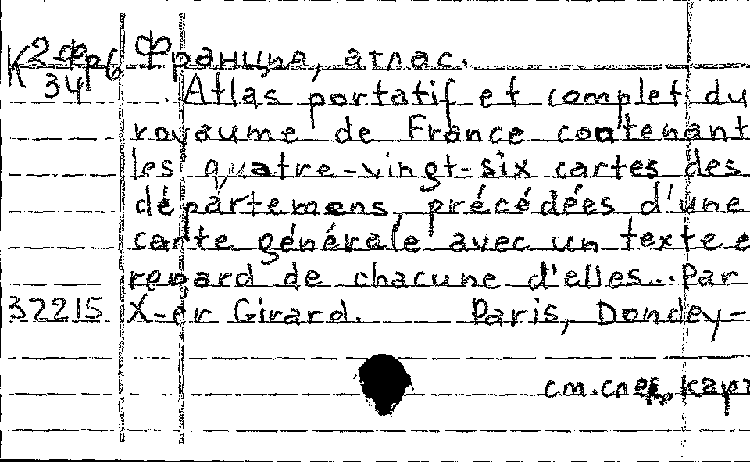 К 2-Фр6 Франция, атлас.
34 Atlas portatif et complet du
royaume de France contenant
les quatre-vingt-six cartes des
départemens, précédées d'une
carte générale avec un texte e
regard de chacune d'elles... Par
32215 X-er Girard. Paris, Dondey-
см. след. карт